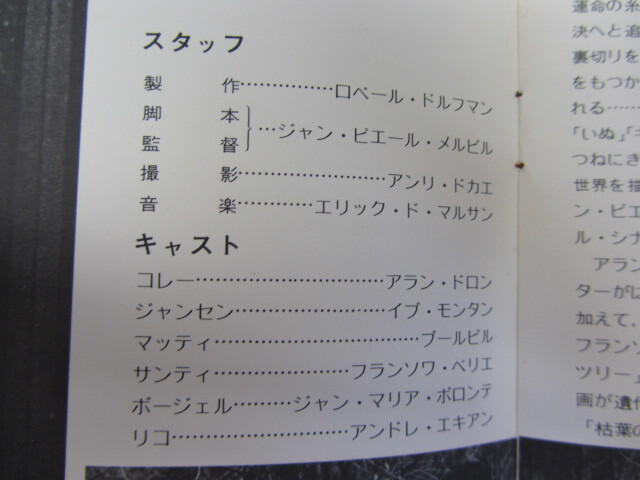 スタッフ
製作……………ロベール・ドルフマン
脚本
監督}…ジャン・ピエール・メルビル
撮影……………………アンリ・ドカエ
音楽…………エリック・ド・マルサン
キャスト
コレー…………………………アラン・ドロン
ジャンセン……………………イブ・モンタン
マッティ……………………………ブールビル
サンティ…………………フランソワ・ペリエ
ボージェル………ジャン・マリア・ボロンテ
リコ………………………アンドレ・エキアン
運命の糸
決へと追
裏切りを
をもつか
れる……
「いぬ」「
つねにき
世界を描
ン・ピエ
ル・シナ
アラン
ターがに
加えて、
フランソ
ツリー」
画が遺作
「枯葉の